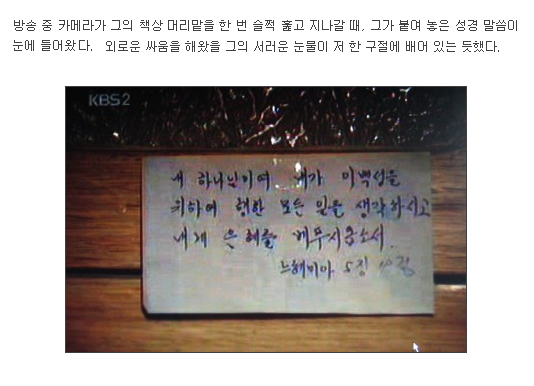 방송 중 카메라가 그의 책상 머리맡을 한 번 슬쩍 훑고 지나갈 때, 그가 붙여 놓은 성경 말씀이
눈에 들어왔다. 외로운 싸움을 해왔을 그의 서러운 눈물이 저 한 구절에 배어 있는 듯했다.
KBS2
내 하나님이여 내가 이백성을
위하여 행한 모든 일을 생각하시고
내게 은혜를 베푸시옵소서.
느헤미야 5장